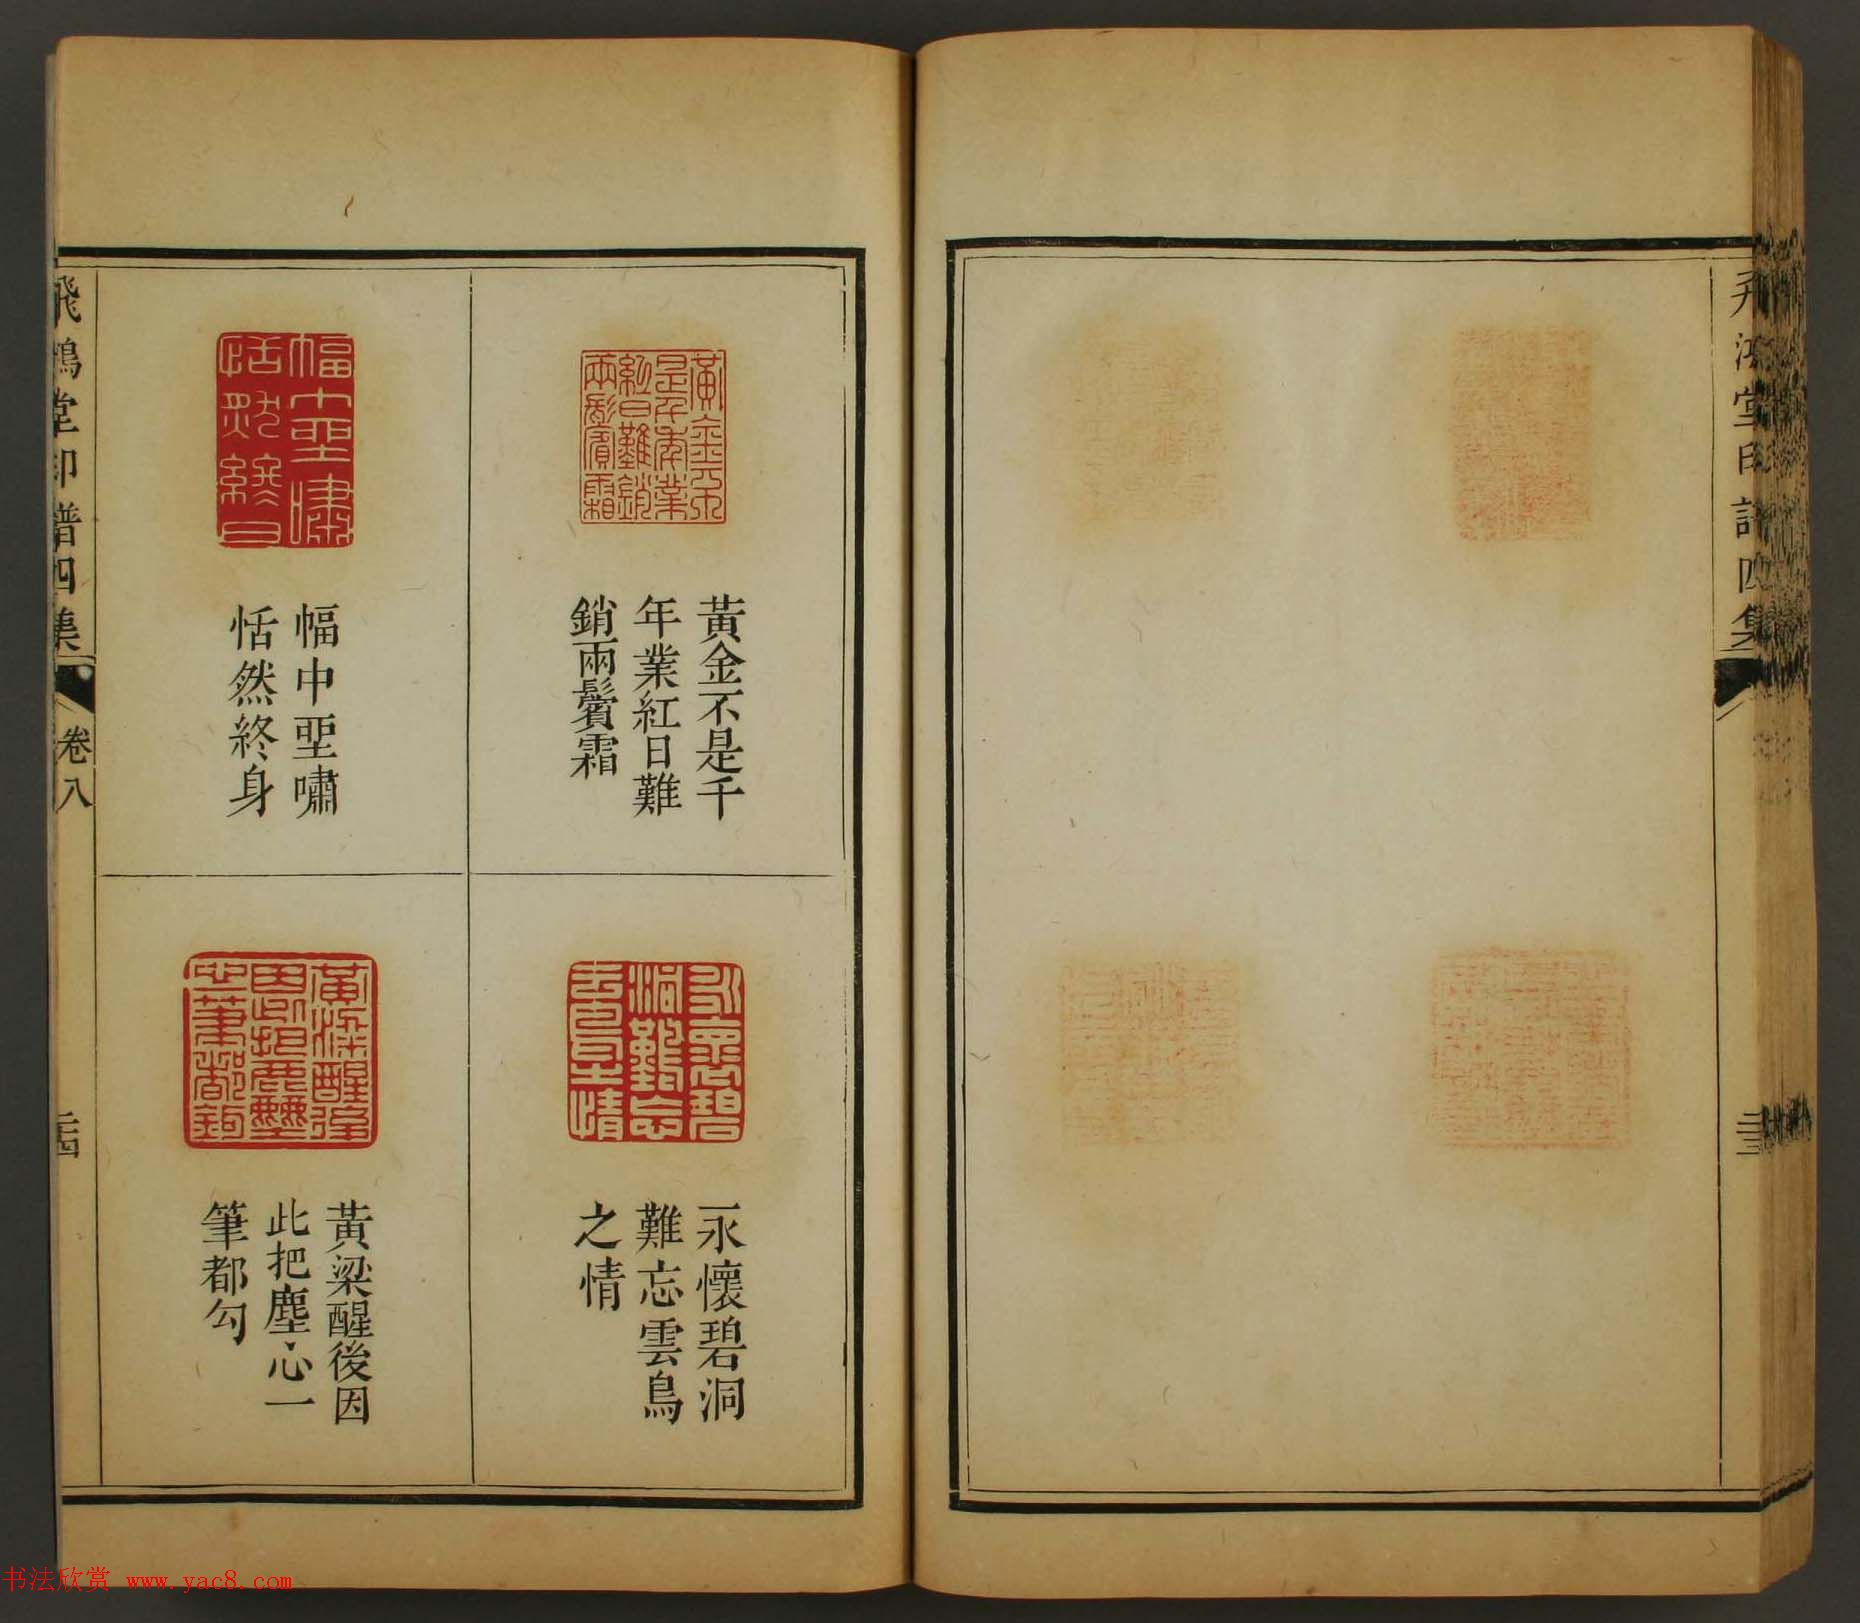 飛鴻堂印譜四集
二十三
黃金不是千
年業紅日難
銷兩鬢霜
永懷碧洞
難忘雲鳥
之情
幅中坙嘯
恬然終身
黃粱醒後因
此把塵心一
筆都勾
飛鴻堂印譜四集
卷八
二十四
书法欣赏 www.yac8.com